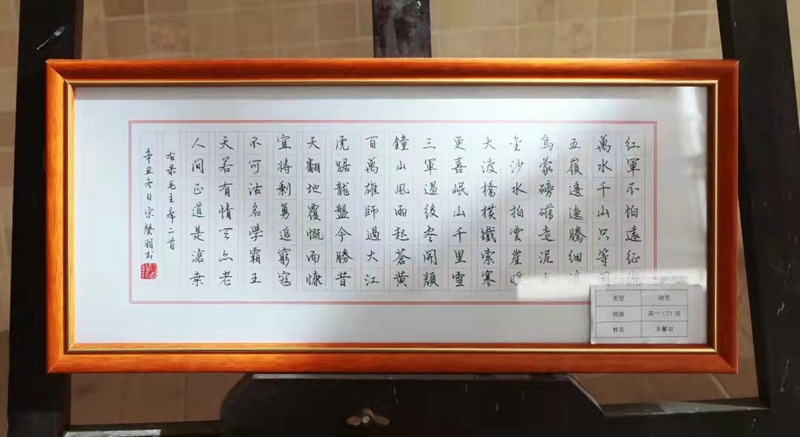 紅軍不怕遠征難
萬水千山只等閑
五嶺逶迤騰細浪
烏蒙磅礴走泥丸
金沙水拍雲崖暖
大渡橋橫鐵索寒
更喜岷山千里雪
三軍過後尽開顏
鐘山風雨起蒼黃
百萬雄師過大江
虎踞龍盤今勝昔
天翻地覆慨而慷
宜將剩勇追窮寇
不可沽名學霸王
天若有情天亦老
人间正道是滄桒
右录毛主席二首
辛丑冬日宋馨
类型 硬笔
班级 高一（7）班
姓名